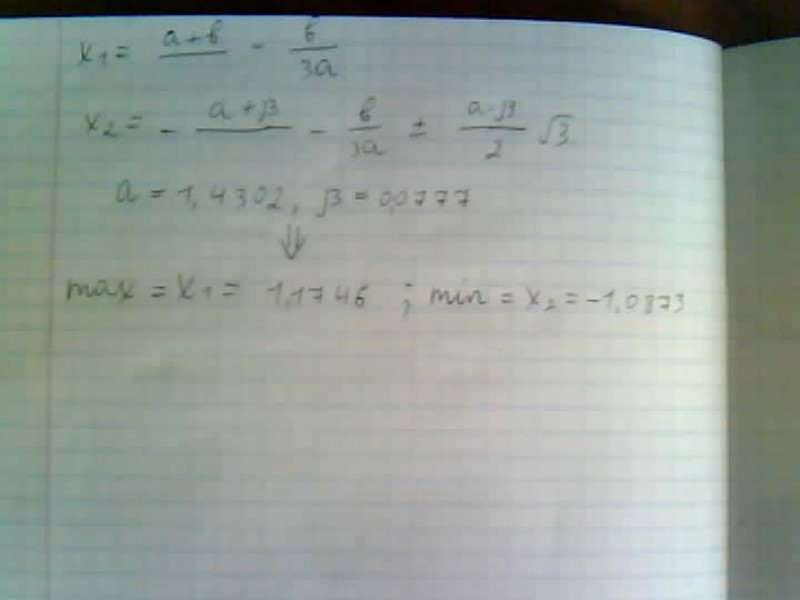 x₁ = a+b/ - b/3a
x₂ = - a+β/ - b/3a ± a-β/2 √3
a = 1,4302, β = 0,0777
⇓
max = x₁ = 1,1746 ; min = x₂ = -1,0873